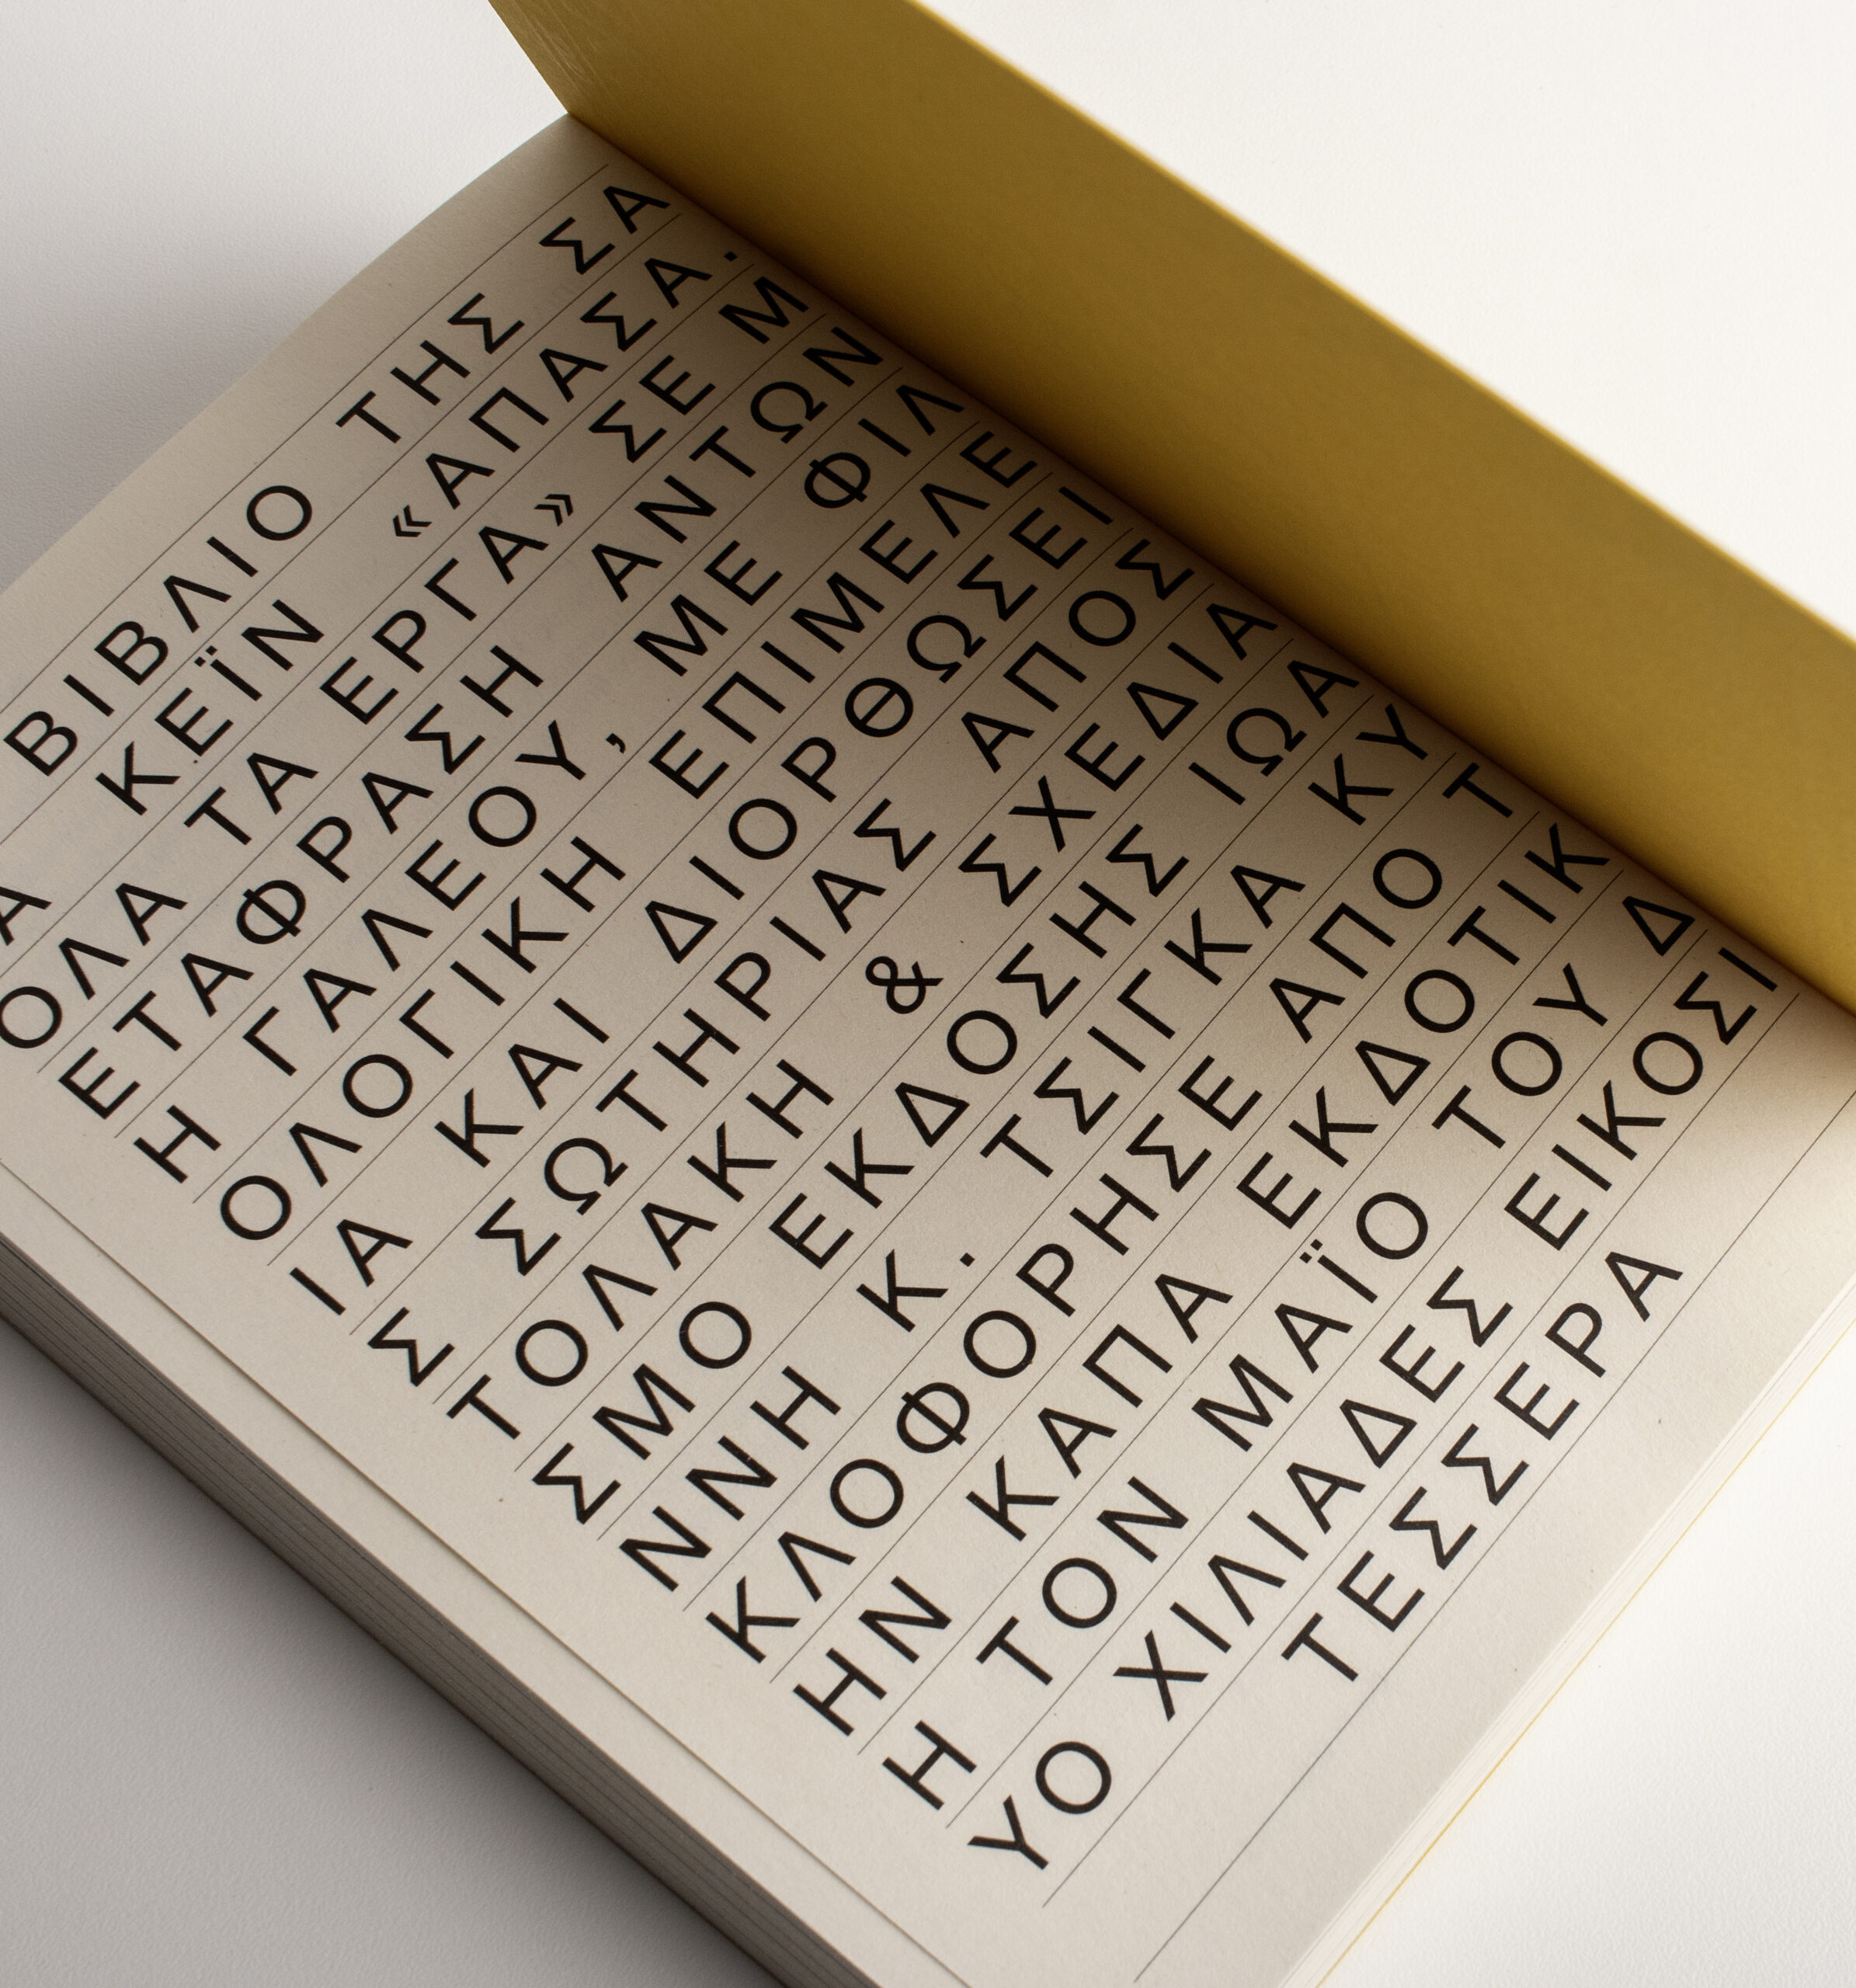 ΒΙΒΛΙΟ ΤΗΣ ΣΑ
Α ΚΕΪΝ «ΑΠΑΣΑ.
ΟΛΑ ΤΑ ΕΡΓΑ» ΣΕ Μ
ΕΤΑΦΡΑΣΗ ΑΝΤΩΝ
Η ΓΑΛΕΟΥ, ΜΕ ΦΙΛ
ΟΛΟΓΙΚΗ ΕΠΙΜΕΛΕ
ΙΑ ΚΑΙ ΔΙΟΡΘΩΣΕΙ
Σ ΣΩΤΗΡΙΑΣ ΑΠΟΣ
ΤΟΛΑΚΗ & ΣΧΕΔΙΑ
ΣΜΟ ΕΚΔΟΣΗΣ ΙΩΑ
ΝΝΗ Κ. ΤΣΙΓΚΑ ΚΥ
ΚΛΟΦΟΡΗΣΕ ΑΠΟ Τ
ΗΝ ΚΑΠΑ ΕΚΔΟΤΙΚ
Η ΤΟΝ ΜΑΪΟ ΤΟΥ Δ
ΥΟ ΧΙΛΙΑΔΕΣ ΕΙΚΟΣΙ
ΤΕΣΣΕΡΑ